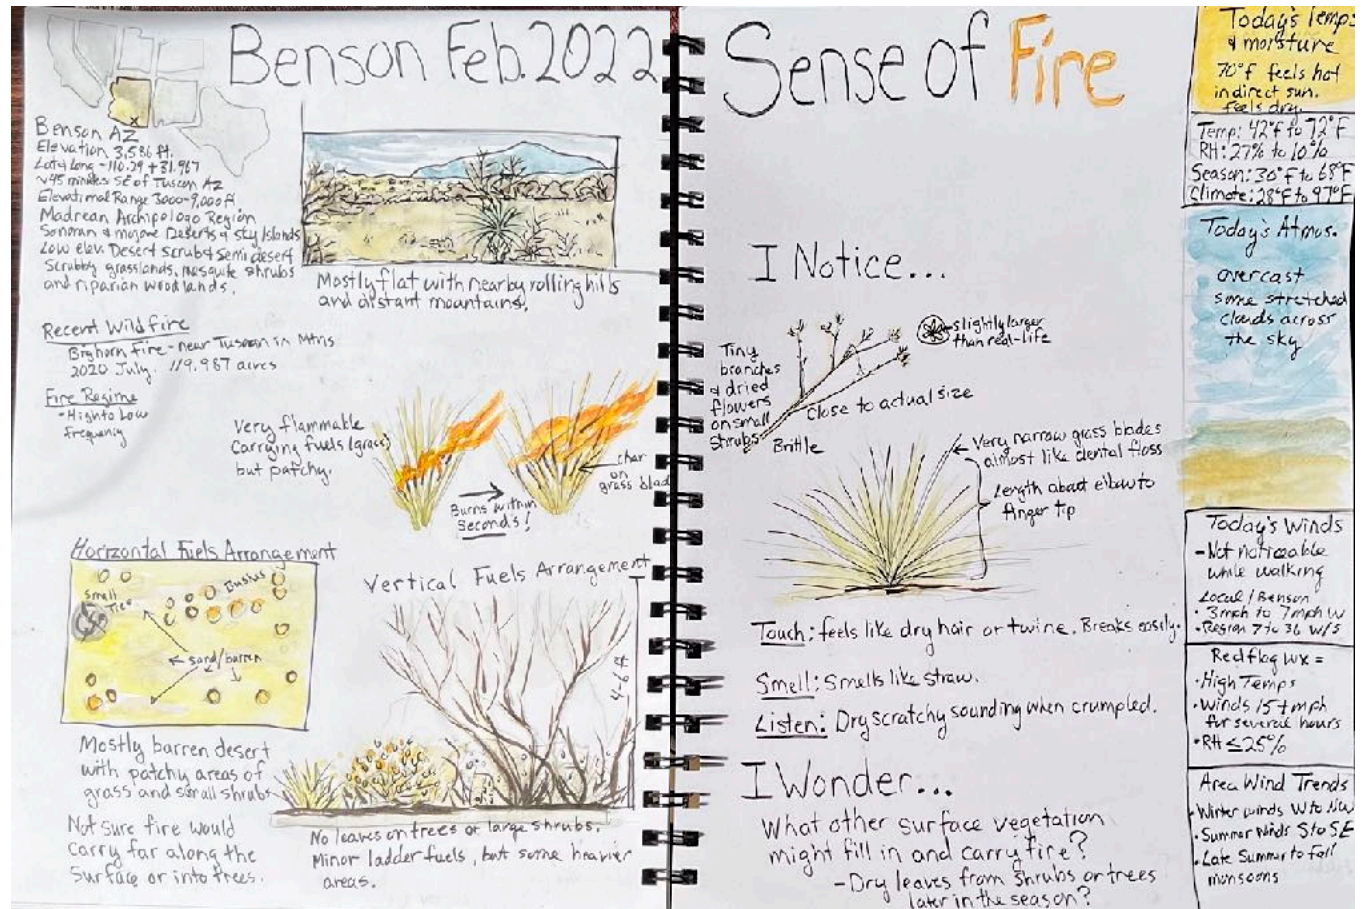 Benson Feb. 2022
Benson AZ
Elevation 3,586 ft.
Lat & Long -110.29 + 31.967
~45 minutes SE of Tuscon AZ
Elevational Range 3000-9,000 ft
Madrean Archipelago Region
Sonoran & Mojave Deserts & sky Islands
Low elev. Desert scrub & Semi desert
Scrubby grasslands, mesquite shrubs
and riparian woodlands.
Mostly flat with nearby rolling hills
and distant mountains.
Recent Wildfire
Bighorn Fire - near Tuscan in Mtns
2020 July. 119,987 acres
Fire Regime
- High to Low
frequency
Very flammable
Carrying fuels (grass)
but patchy.
Burns within
Seconds!
char
on
grass blad
Horizontal Fuels Arrangement
Small
Tree
Bushes
sand/barren
Mostly barren desert
with patchy areas of
grass and small shrubs
Not sure fire would
Carry far along the
Surface or into trees.
Vertical Fuels Arrangement
4-6 ft
No leaves on trees or large shrubs.
Minor ladder fuels, but some heavier
areas.
Sense of Fire
I Notice...
Tiny
branches
& dried
flowers
on small
shrubs
slightly larger
than real-life
Close to actual size
Brittle
Very narrow grass blades
almost like dental floss
Length about elbow to
finger tip
Touch: feels like dry hair or twine. Breaks easily.
Smell: Smells like straw.
Listen: Dry scratchy sounding when crumpled.
I Wonder...
What other surface vegetation
might fill in and carry fire?
- Dry leaves from shrubs or trees
later in the season?
Today's Temps
& moisture
70°F feels hot
in direct sun.
feels dry.
Temp: 42°F to 72°F
RH: 27% to 10%
Season: 30°F to 68°F
Climate: 28°F to 97°F
Today's Atmos.
overcast
some stretched
clouds across
the sky
Today's Winds
- Not noticeable
while walking
Local/Benson
• 3mph to 7mph W
• Region 7 to 36 W/S
Redflag wx =
• High Temps
• Winds 15+mph
for several hours
• RH ≤25%
Area Wind Trends
• Winter winds W to NW
• Summer Winds S to SE
• Late Summer to fall
monsoons